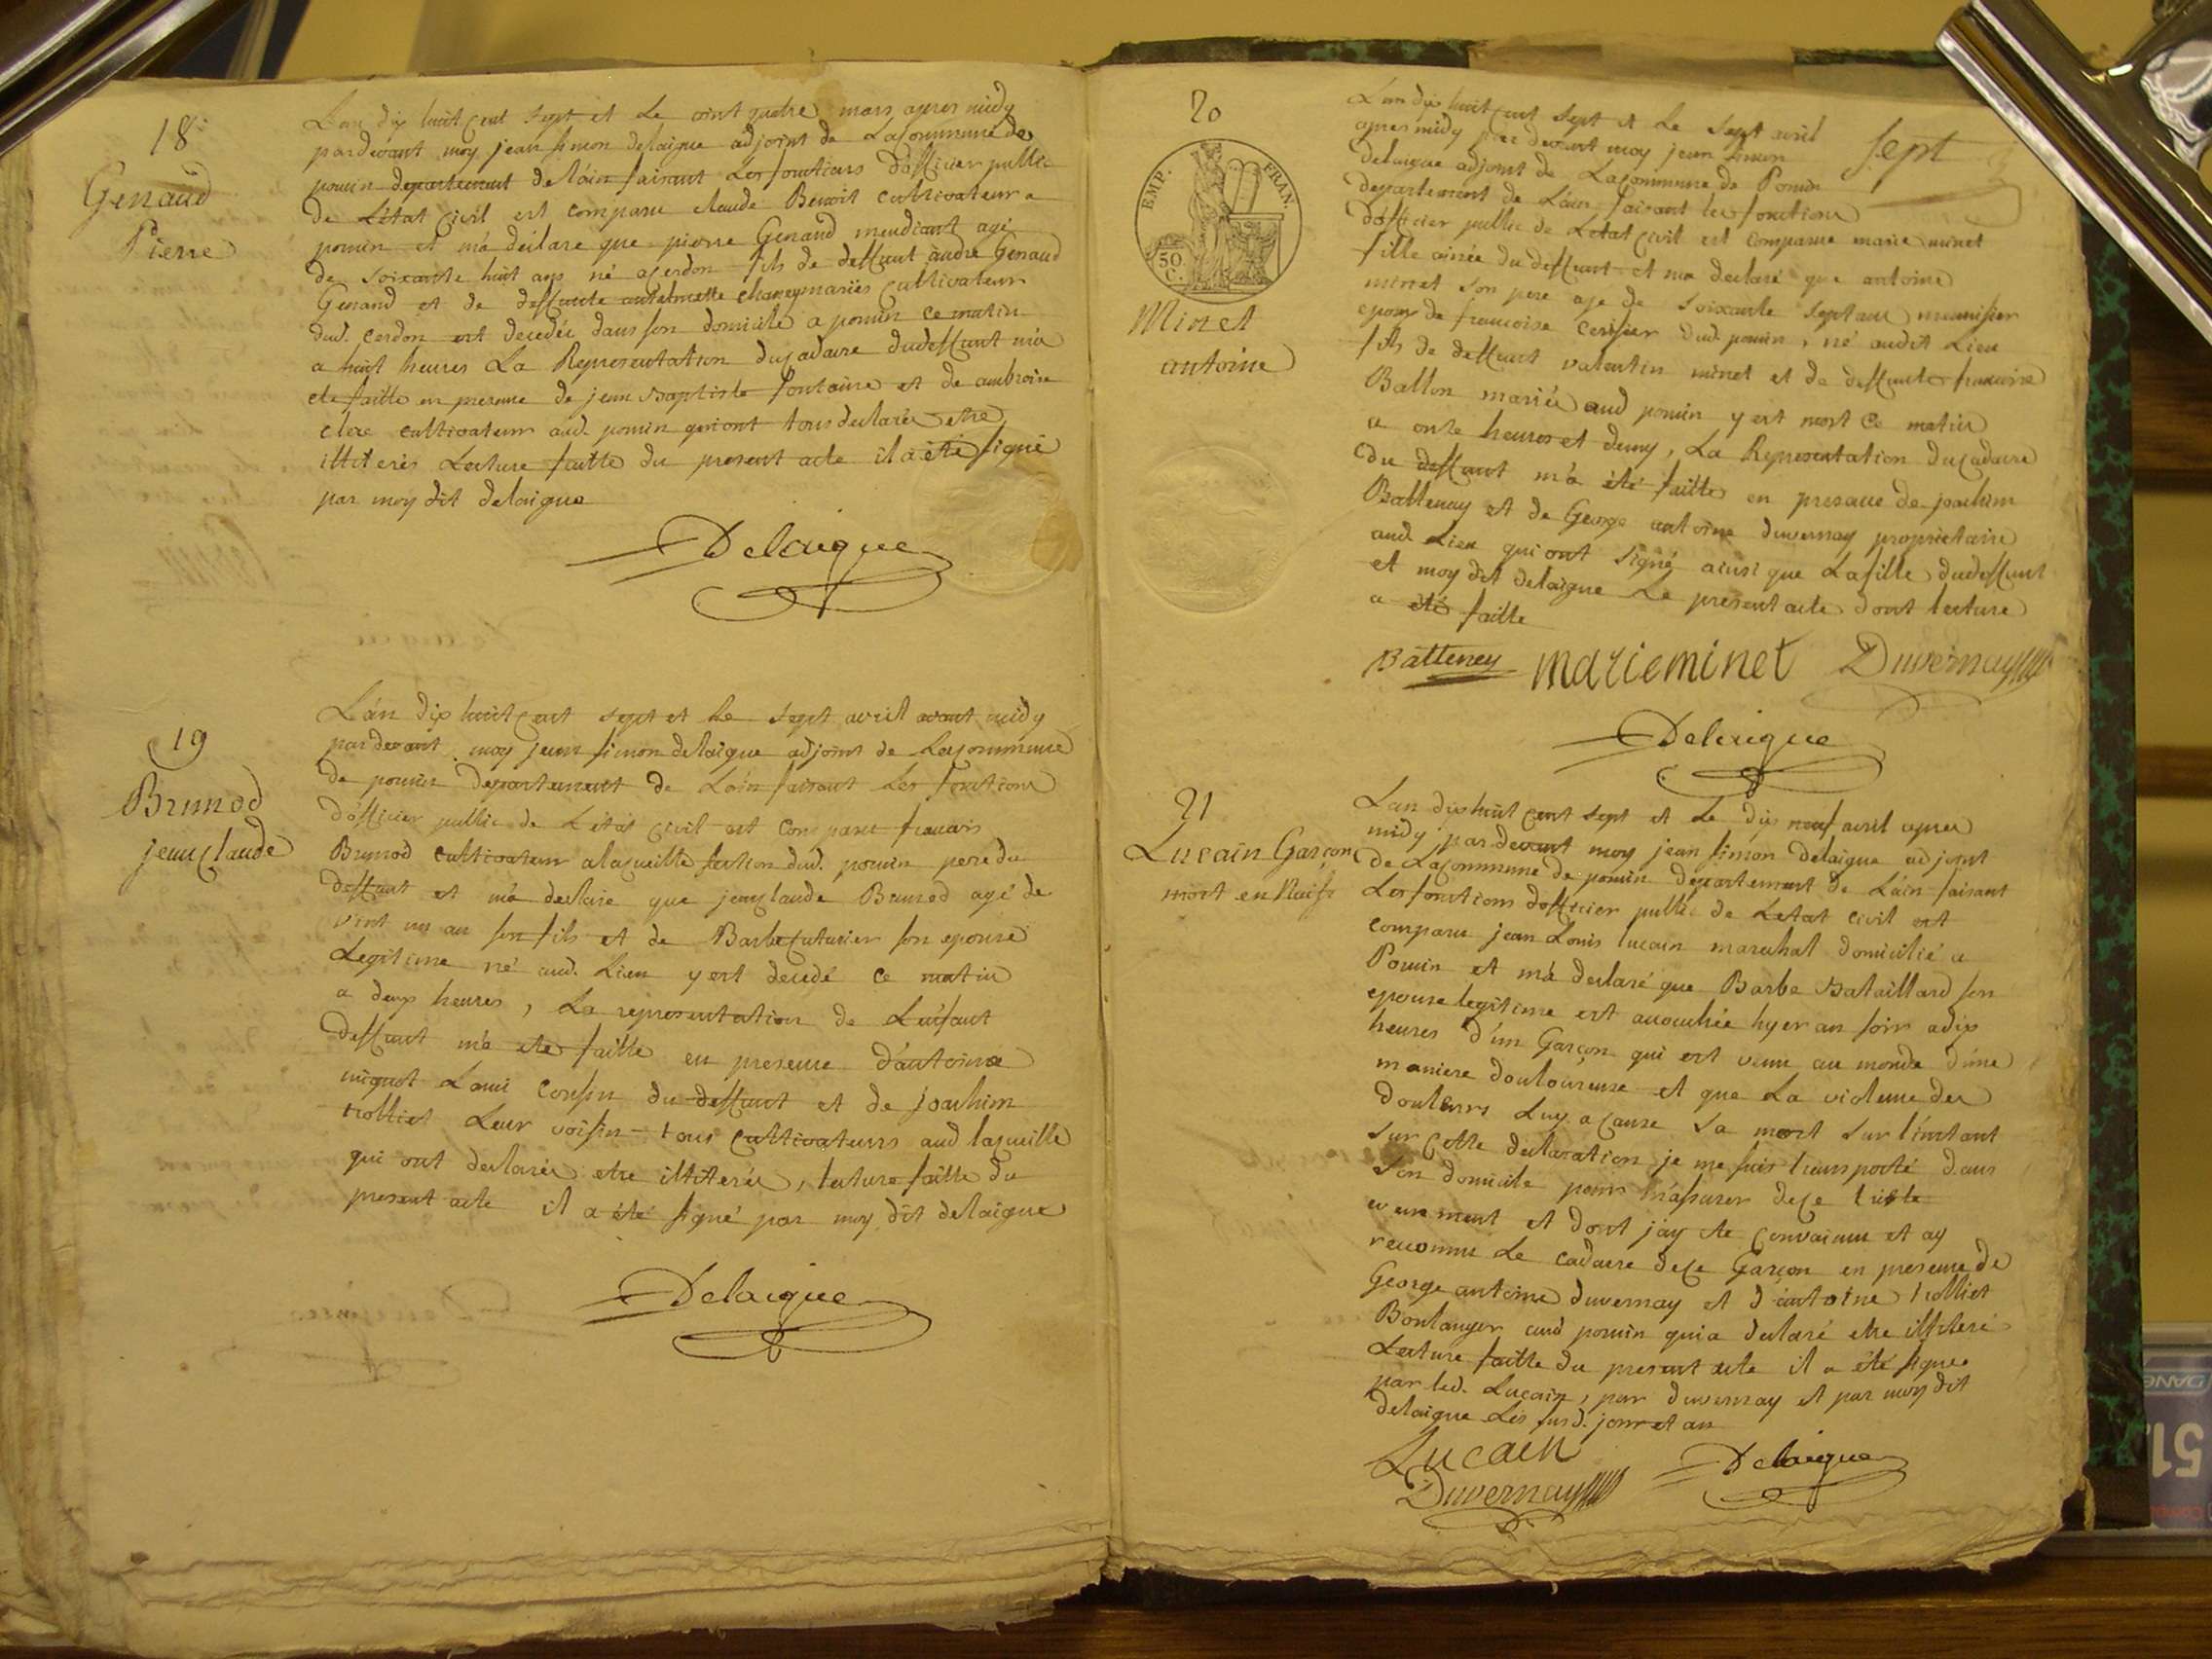 18
Genaud
Pierre
L'an dix huit cent sept et Le vint quatre mars apres midy
pardevant moy jean simon delaigue adjoint de La Commune de
poncin departement de l'áin faisant Les fonctions d'officier public
de L'état Civil est comparu claude Benoit cultivateur a
poncin et m'a déclaré que pierre Genaud mendiant agé
de soixante huit ans né a cerdon fils de deffunt andré Genaud
Genaud et de deffunte antelmette mariés Cultivateur
dud. cerdon est decedée dans son domicile a poncin ce matin
a huit heures La Representation du cadavre du deffunt m'a
ete faitte en presence de jean Baptiste fontaine et de ambroise
clerc cultivateurs aud. poncin qui ont tous declarés etre
illiterés Lecture faitte du present acte il a été signé
par moy dit delaigue
Delaigue
19
Brunod
jean Claude
L'án dix huit Cent sept et Le sept avril avant midy
par devant moy jean simon delaigue adjoint de La Commune
de poncin departement de L'áin faisant Les fonctions
d'officier public de L'etat Civil est Comparu francois
Brunod cultivateur a la cueille section dud. poncin pere du
deffunt et m'a declaré que jean Claude Brunod agé de
vint un an son fils et de Barbe Cuturier son epouse
Legitime né aud. Lieu y est decedé ce matin
a deux heures, La representation de L'enfant
deffunt m'a ete faitte en presence d'antoine
Cousin du deffunt et de joachim
trolliet Leur voisin tous Cultivateurs aud la cueille
qui ont declarés etre illiterés, lecture faitte du
present acte il a été signé par moy dit delaigue
Delaigue
20
EMP. FRAN.
50 C.
Minet
antoine
sept
L'an dix huit Cent sept et Le sept avril
apres midy par devant moy jean simon
delaigue adjoint de La Commune de Poncin
departement de L'áin faisant les fonctions
d'officier public de Letat Civil est Comparue marie minet
fille ainée du deffunt et m'a declaré que antoine
minet son pere agé de soixante sept ans menuisier
epoux de francoise Cerisier dud. poncin, né audit Lieu
fils de deffunt valentin minet et de deffunte francoise
Ballon mariés aud poncin y est mort Ce matin
a onze heures et demy, La Representation du Cadavre
du deffunt m'a été faitte en presence de joachim
Batteney et de George antoine duvernay proprietaire
aud. Lieu qui ont signé ainsi que La fille du deffunt
et moy dit delaigue Le present acte dont lecture
a été faitte
Batteney marieminet Duvernay
Delaigue
21
Lucain Garçon
mort en Naiss
L'an dix huit Cent sept et Le dix neuf avril apres
midy par devant moy jean simon delaigue adjoint
de La Commune de poncin departement de L'áin faisant
Les fonctions d'officier public de Letat Civil est
comparu jean Louis lucain marechal domicilié a
Poncin et m'a declaré que Barbe Bataillard son
epouse legitime est accouchée hyer au soir a dix
heures d'un Garçon qui est venu au monde d'une
maniere douloureuse et que La violence des
douleurs Luy a Causé La mort sur l'instant
sur Cette declaration je me suis transporté dans
son domicile pour m'assurer de Ce triste
evenement et dont j'ay ete Convaincu et ay
reconnu Le Cadavre de Ce Garçon en presence de
George antoine duvernay et d'antoine trolliet
Boulanger aud poncin qui a declaré etre illiteré
Lecture faitte du present acte il a été signé
par led. Lucain, par duvernay et par moy dit
delaigue Les susd. jour et an
Lucain
Duvernay Delaigue